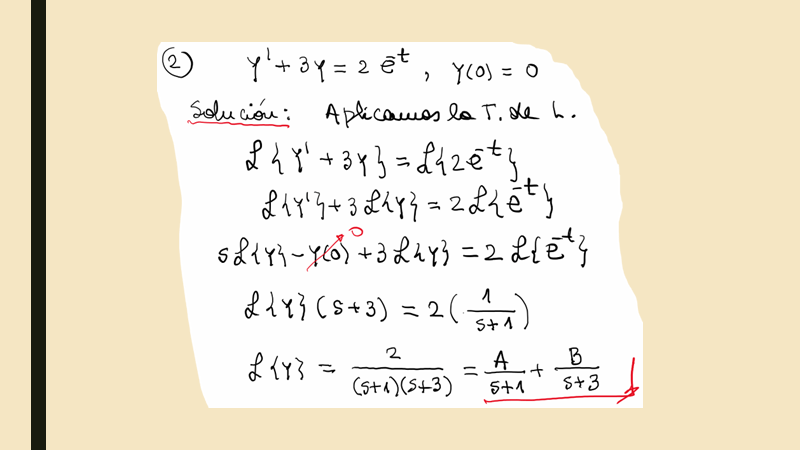 ② y' + 3y = 2e^-t , y(0) = 0
Solución: Aplicamos la T. de L.
ℒ{y' + 3y} = ℒ{2e^-t}
ℒ{y'} + 3ℒ{y} = 2ℒ{e^-t}
sℒ{y} - y(0) 0 + 3ℒ{y} = 2ℒ{e^-t}
ℒ{y}(s+3) = 2(1/(s+1))
ℒ{y} = 2/((s+1)(s+3)) = A/(s+1) + B/(s+3)